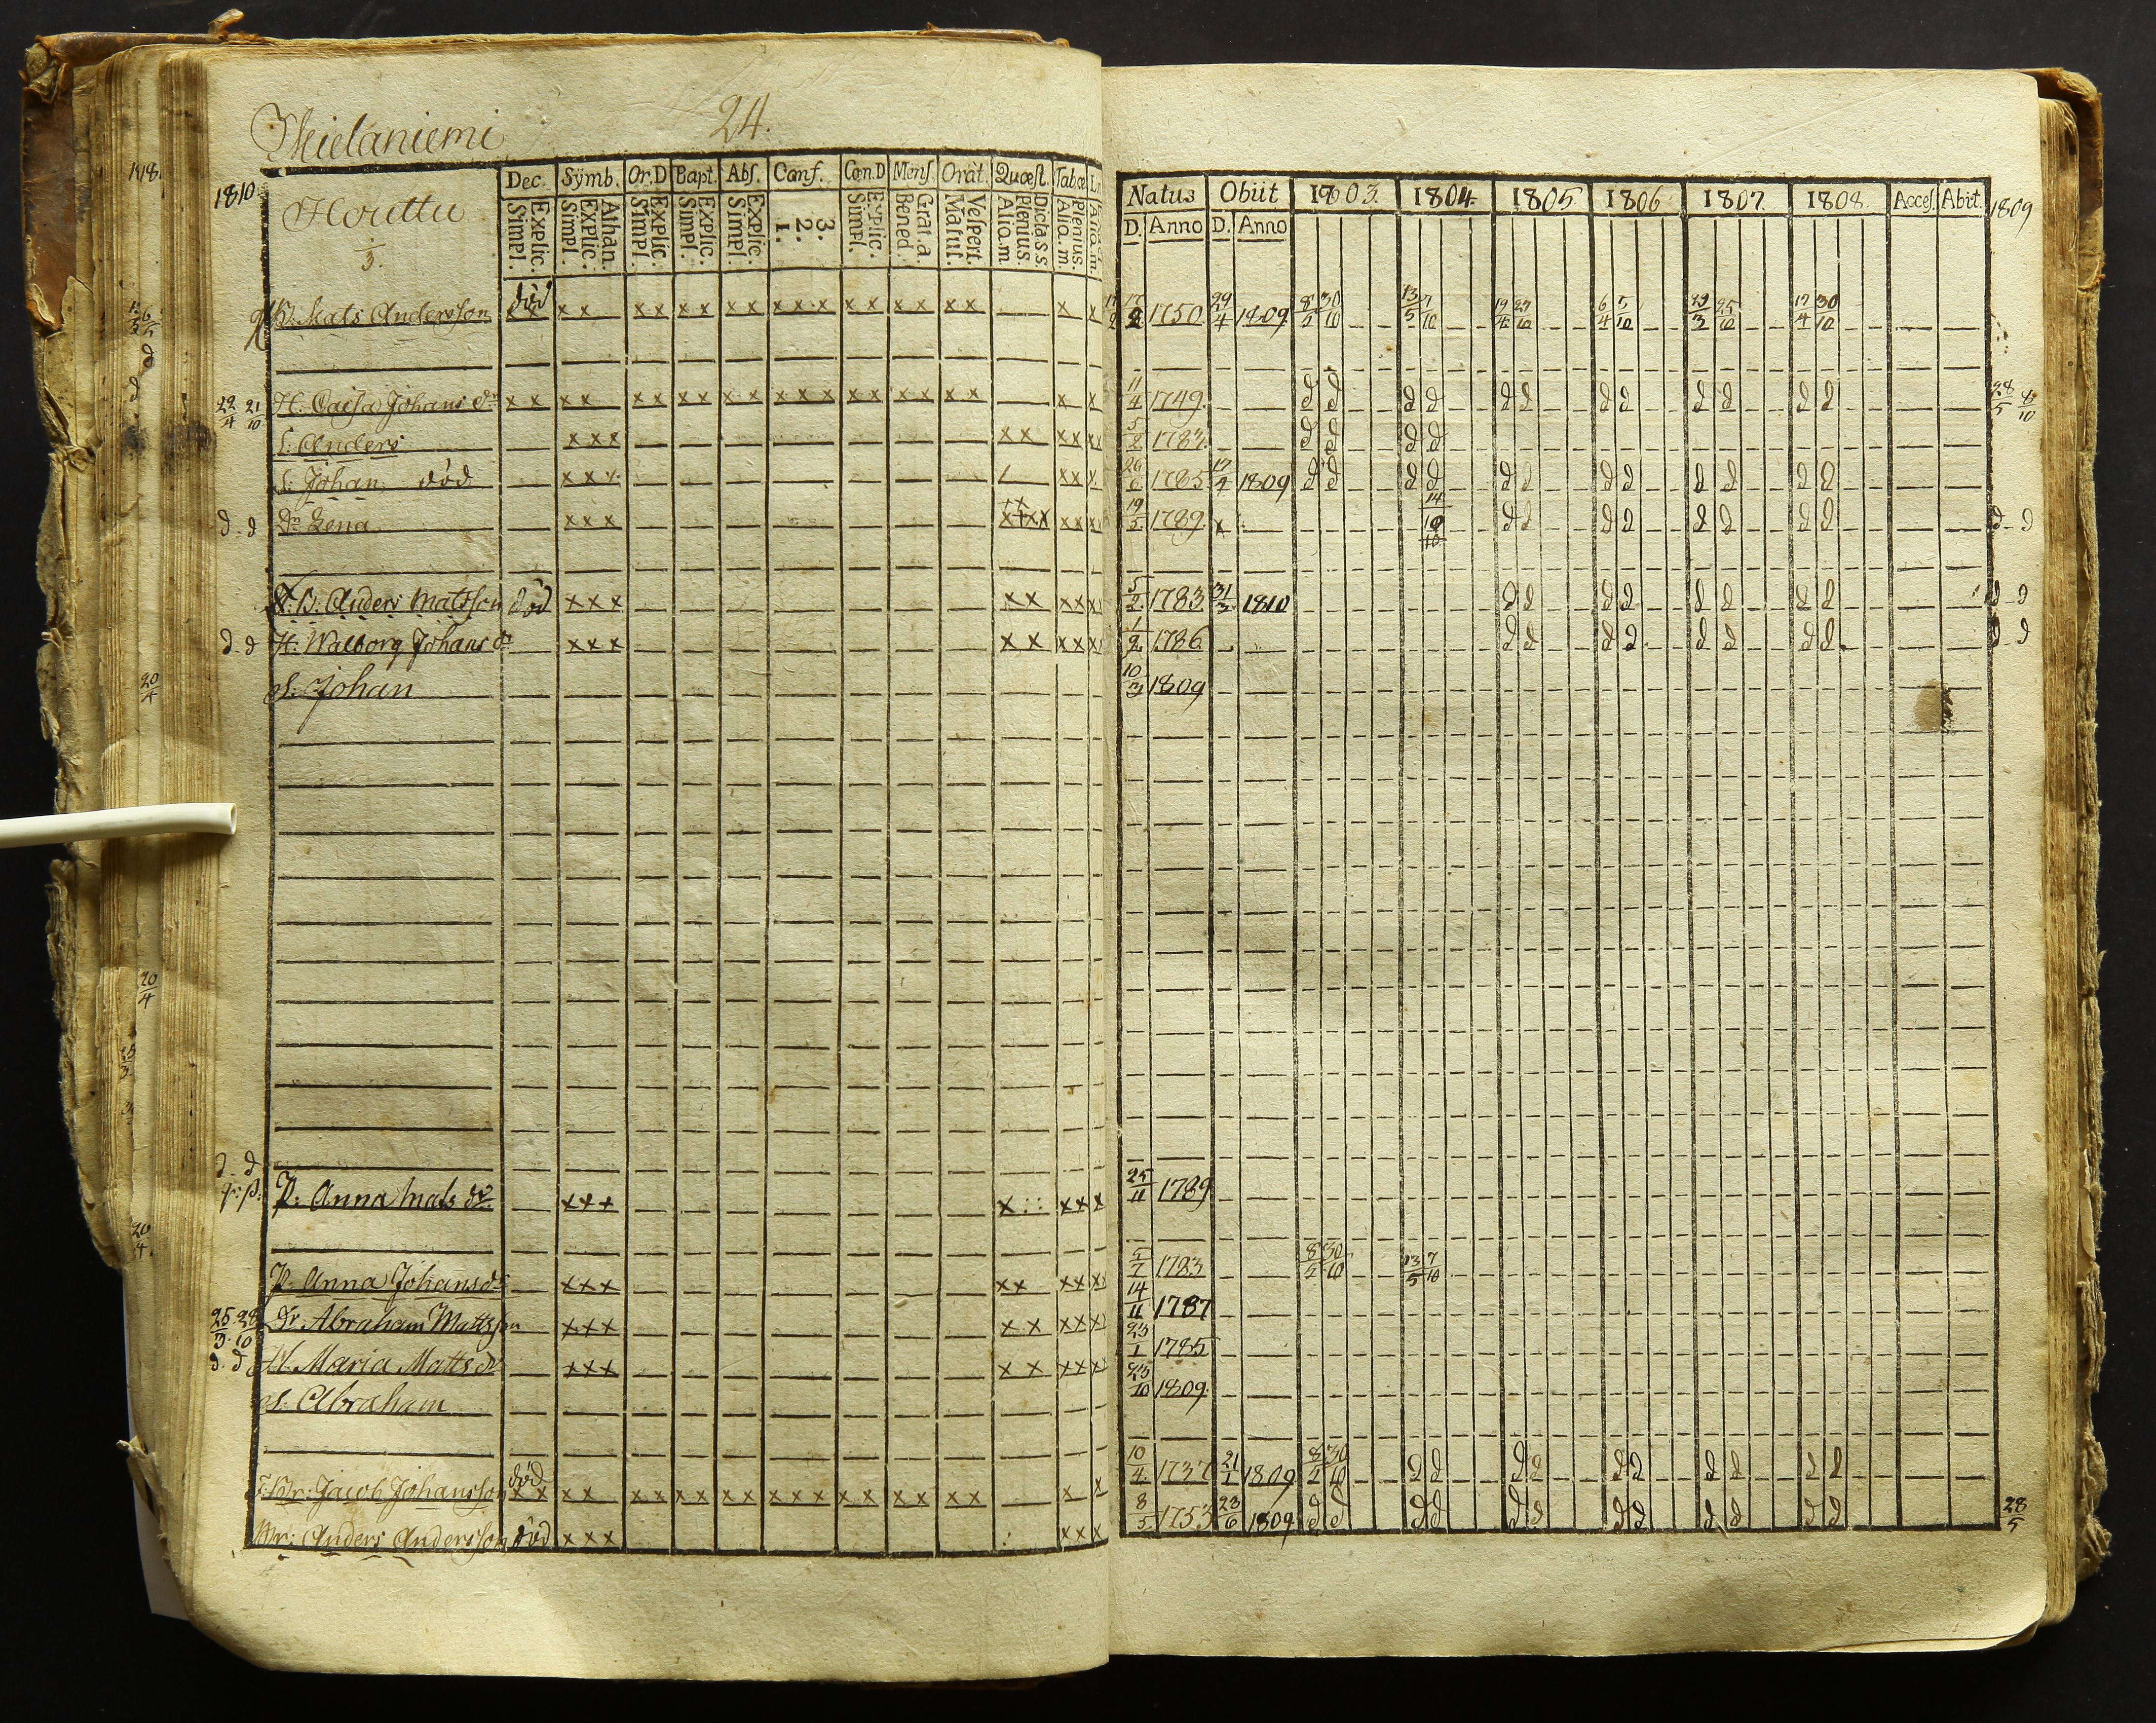 24.
1810
Houttu
3.
Dec. Symb. Or.D Bapt. Abs. Conf. Cœn.D Mens. Orat. Quæst. Tabæ
Explic. Simpl. Athan. Explic. Simpl. Explic. Simpl. Explic. Simpl. Explic. Simpl. 3. 2. 1. Explic. Simpl. Grat.a. Bened. Vespert. Matut. Dicta s.s. Plenius. Aliq.m Plenius. Aliq.m
Natus Obiit 1803. 1804. 1805 1806 1807. 1808. Acces. Abit. 1809
D. Anno D. Anno
B. Mats Andersson död x x x x x x x x x x x x x x x x x x x x 17/2 1750 29/4 1809 8/5 30/10 13/5 7/10 6/4 5/10 25/10 17/4 30/10
22/4 21/10 H. Caisa Johans dr x x x x x x x x x x x x x x x x x x x x x 11/4 1749. d d d d d d d d d d d d 28/5 8/10
S. Anders x x x x x x x 5/2 1783. d d d d
S: Johan död x x x x x 1785 17/4 1809 d d d d d d d d d d d d
d - d Dr Lena x x x x x 19/5 1789. x 14/10 d d d d d d d d d - d
B. Anders Matsson död x x x x x x x 5/2 1783 31/3 1810 d d d d d d d d d - d
d - d H: Walborg Johans dr x x x x x x x 1/2 1786 d d d d d d d d d - d
S. Johan 10/3 1809
d - d
P: Anna Mats dr x x x x x x x 25/11 1789
P. Anna Johans dr x x x x x x x 1783 8/5 30/10 13/5 7/10
25/3 28/10 Dr Abraham Mattsson x x x x x x x 14/11 1787
d. d H. Maria Matts dr x x x x x x x 23/1 1785
S. Abraham 23/10 1809.
Br: Jacob Johansson död x x x x x x x x x x x x x x x x x x x 10/4 1737 21/1 1809 8/5 30/10 d d d d d d d d d d
Br: Anders Andersson död x x x x x x 8/5 1753 23/6 1809 d d d d d d d d d d d d 28/5